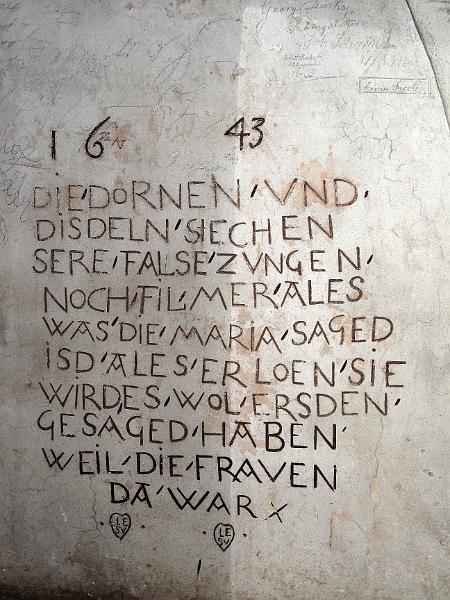 16 43
DIE'DORNEN'VND'
DISDELN'SIECHEN
SERE'FALSE'ZVNGEN'
NOCH'FIL'MER'ALES
WAS'DIE'MARIA'SAGED
ISD'ALES'ERLOEN'SIE
WIRDES'WOL'ERSDEN'
GESAGED'HABEN'
WEIL'DIE'FRAVEN
DA'WAR x
LE SV LE SV